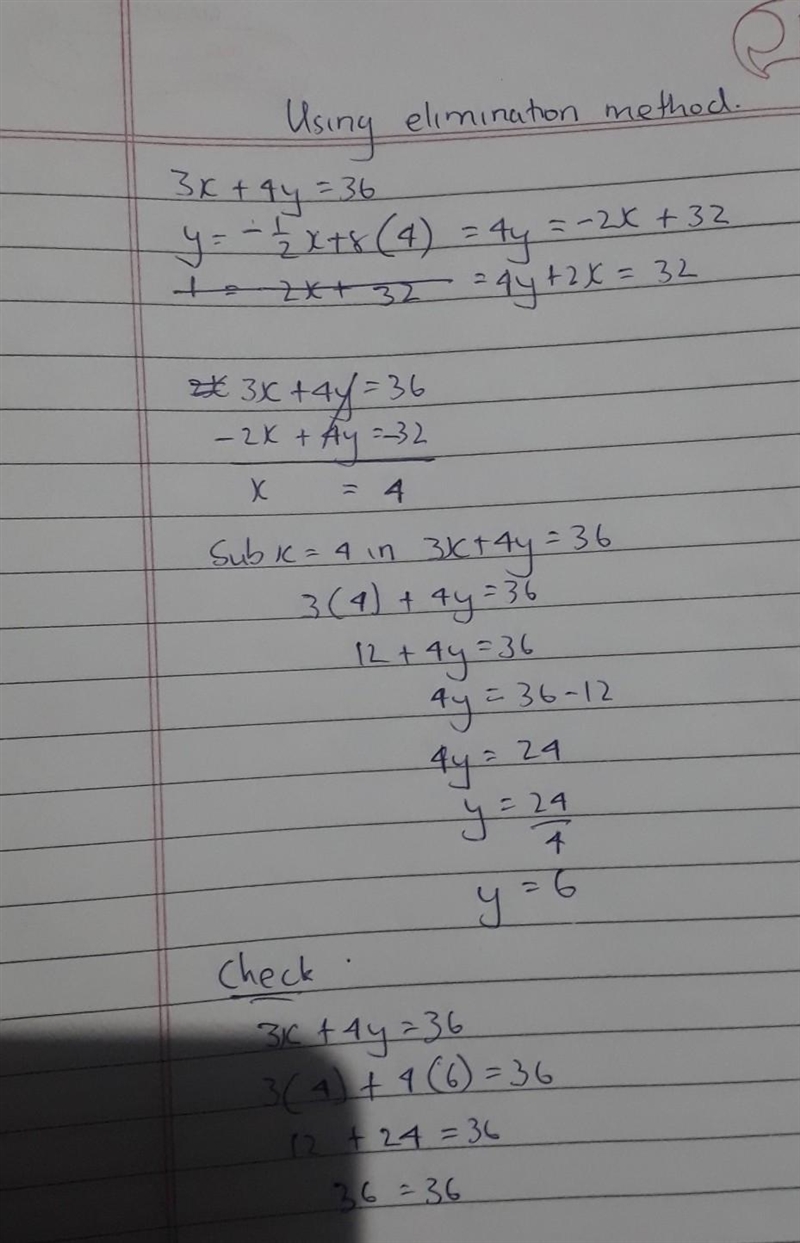 Using elimination method.
3x + 4y = 36
y = -1/2 x + 8 (4) = 4y = -2x + 32
= 4y + 2x = 32
3x + 4y = 36
-2x + 4y = -32
x = 4
Sub x = 4 in 3x + 4y = 36
3(4) + 4y = 36
12 + 4y = 36
4y = 36 - 12
4y = 24
y = 24/4
y = 6
Check
3x + 4y = 36
3(4) + 4(6) = 36
12 + 24 = 36
36 = 36